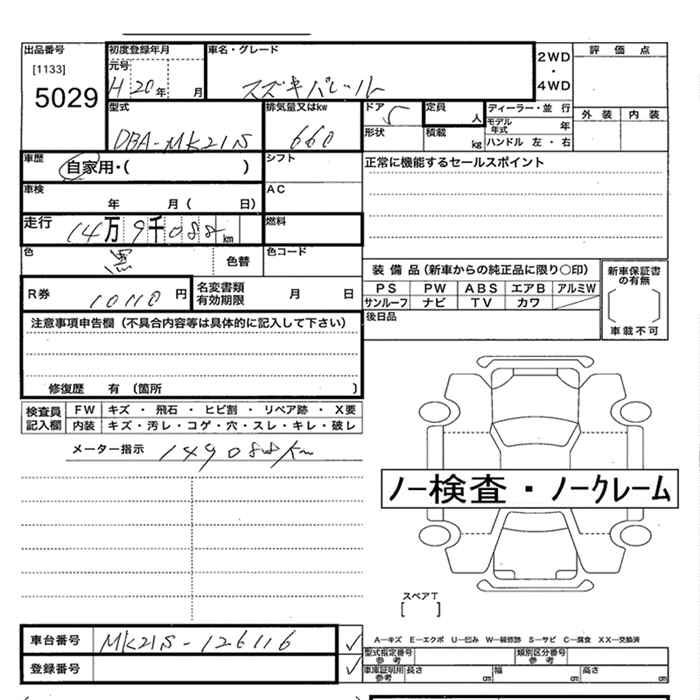 出品番号 初度登録年月 車名・グレード 2WD ・ 4WD 評価点
[1133] 元号
5029 H 20 年 月 スズキパレット
型式 排気量又はkw ドア 5 定員 人 ディーラー・並行 外装 内装
モデル年式 年
DBA-MK21S 660 形状 積載 kg ハンドル 左・右
車歴 自家用・( ) シフト 正常に機能するセールスポイント
車検 年 月( 日) AC
走行 14万9千088km 燃料
色 黒 色替 色コード
装備品(新車からの純正品に限り○印) 新車保証書の有無
R券 10110円 名変書類有効期限 月 日 PS PW ABS エアB アルミW
サンルーフ ナビ TV カワ
後日品 車載不可
注意事項申告欄(不具合内容等は具体的に記入して下さい)
修復歴 有(箇所 )
検査員記入欄 FW キズ・飛石・ヒビ割・リペア跡・X要
内装 キズ・汚レ・コゲ・穴・スレ・キレ・破レ
メーター指示 149088km
ノー検査・ノークレーム
スペアT
[ ]
車台番号 MK21S-126116 A―キズ E―エクボ U―凹み W―補修跡 S―サビ C―腐食 XX―交換済
型式指定番号 参考 類別区分番号 参考
登録番号 車庫証明用 参考 長さ cm 幅 cm 高さ cm